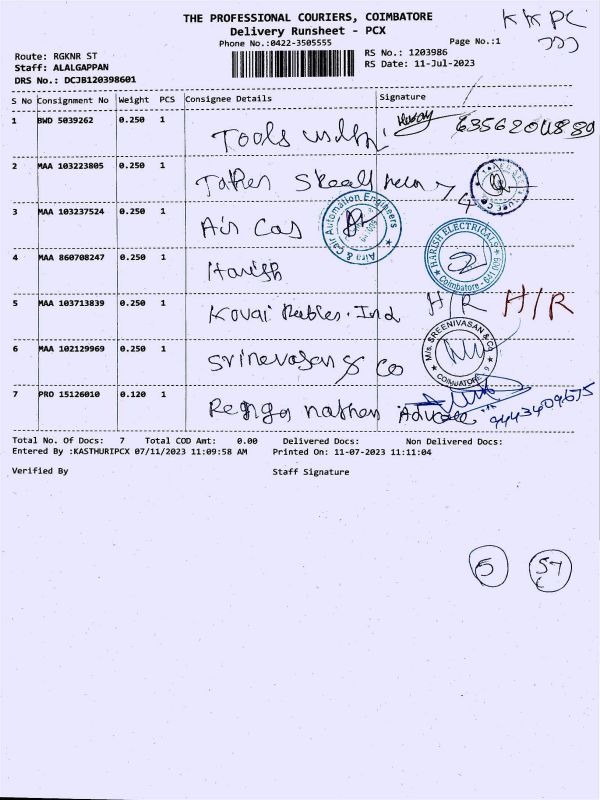 THE PROFESSIONAL COURIERS, COIMBATORE
Delivery Runsheet - PCX
Phone No.:0422-3505555
Page No.:1
KKPC
Route: RGKNR ST
Staff: ALALGAPPAN
DRS No.: DCJB120398601
RS No.: 1203986
RS Date: 11-Jul-2023
S No Consignment No Weight PCS Consignee Details Signature
1 BWD 5039262 0.250 1 Tools
2 MAA 103223805 0.250 1
3 MAA 103237524 0.250 1 Air Cas
Aira & Cair Automation Engineers
4 MAA 860708247 0.250 1 Harish
HARISH ELECTRICALS
Coimbatore - 641 009
5 MAA 103713839 0.250 1 Kovai Ind H/R H/R
6 MAA 102129969 0.250 1 Srinevasan & Co
M/s. SREENIVASAN & Co
COIMBATORE
7 PRO 15126010 0.120 1 nathan
Total No. Of Docs: 7 Total COD Amt: 0.00 Delivered Docs: Non Delivered Docs:
Entered By :KASTHURIPCX 07/11/2023 11:09:58 AM Printed On: 11-07-2023 11:11:04
Verified By Staff Signature
5 57